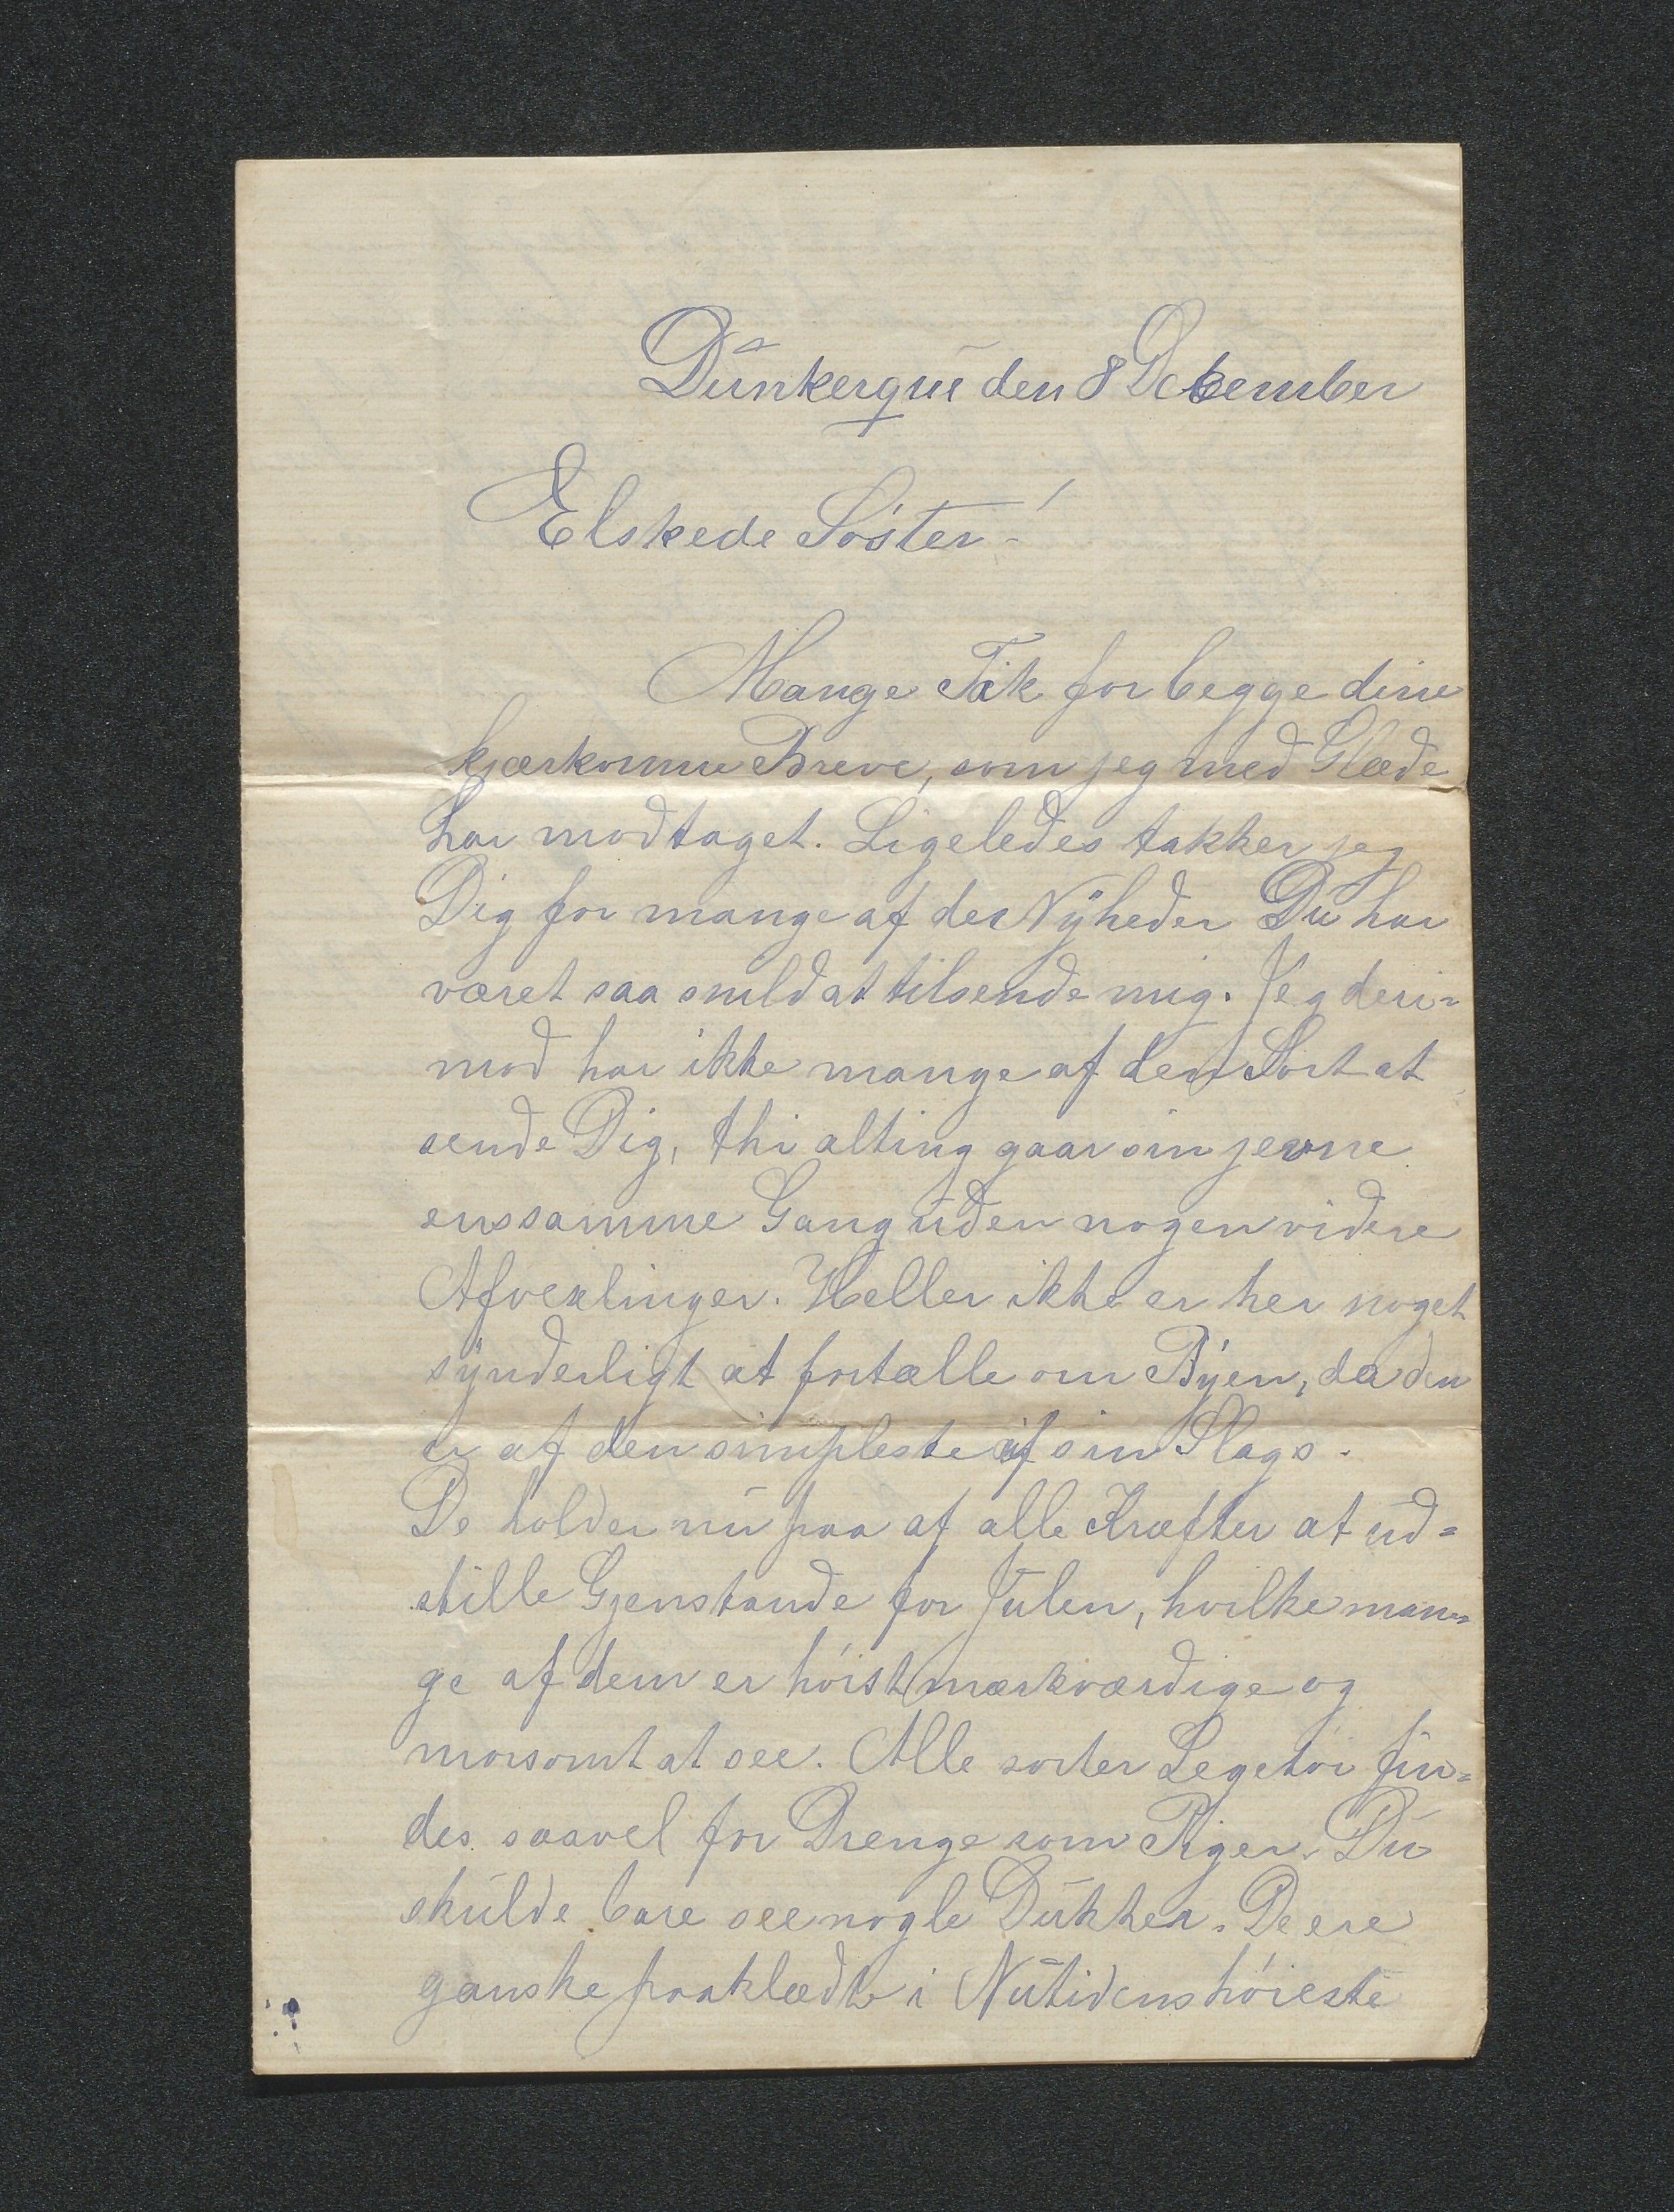 Dunkerque den 8 December
Elskede Søster!
Mange Tak for begge dine
kjærkomne Breve, som jeg med Glæde
har modtaget. Ligeledes takker jeg
Dig for mange af de Nyheder Du har
været saa snild at tilsende mig. Jeg deri-
mod har ikke mange af den Sort at
sende Dig, thi alting gaar sin jevne
enssamme Gang uden nogen videre
Afvexlinger. Heller ikke er her noget
synderligt at fortælle om Byen, da den
er af den simpleste af sin Slags.
De holder nu paa af alle Kræfter at ud=
stille Gjenstande for Julen, hvilke man=
ge af dem er höist mærkværdige og
morsomt at see. Alle sorter Legetöi fin=
des saavel for Drenge som Piger. Du
skulde bare see nogle Dukker. De ere
ganske paaklædte i Nutidens höieste